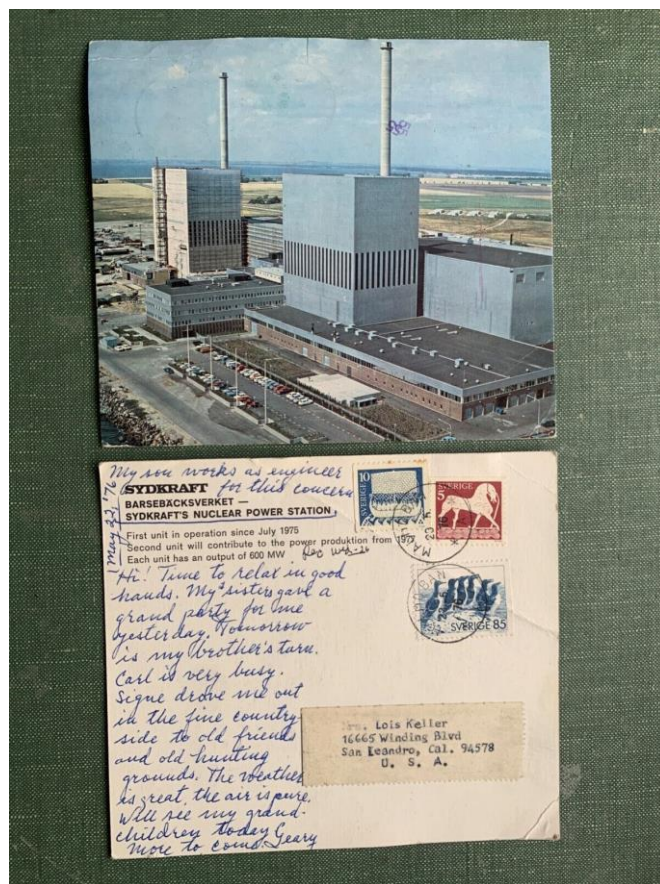 My son works as engineer
for this concern
May 22, '76
SYDKRAFT
BARSEBÄCKSVERKET —
SYDKRAFT'S NUCLEAR POWER STATION
First unit in operation since July 1975
Second unit will contribute to the power produktion from 197
Each unit has an output of 600 MW
Hi! Time to relax in good
hands. My sisters gave a
grand party for me
yesterday. Tomorrow
is my brother's turn.
Carl is very busy.
Signe drove me out
in the fine country-
side to old friends
and old hunting
grounds. The weather
is great, the air is pure.
Will see my grand-
children today Geary
more to come.
SVERIGE 10
SVERIGE
5
SVERIGE 85
Lois Keller
16665 Winding Blvd
San Leandro, Cal. 94578
U. S. A.